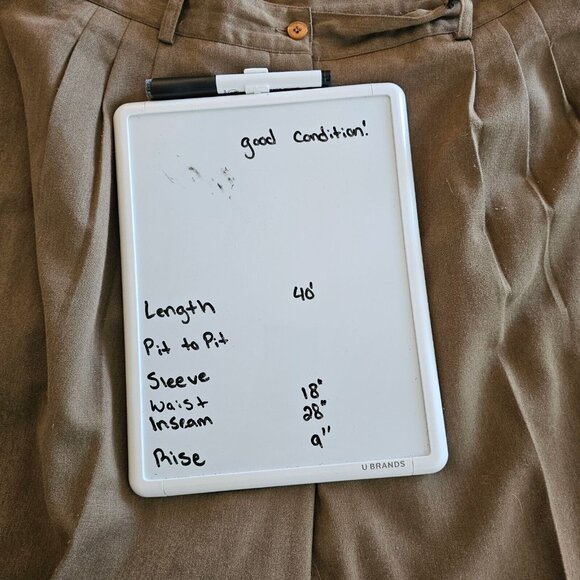 good condition!
Length 40'
Pit to Pit
Sleeve
Waist 18"
Inseam 28"
Rise 9"
U BRANDS